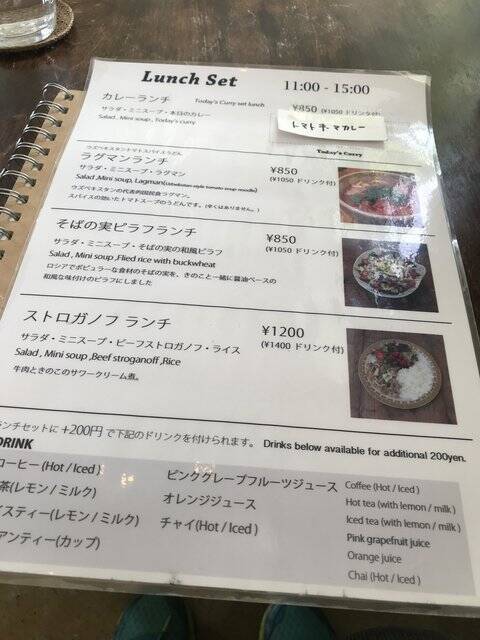 Lunch Set 11:00 - 15:00
カレーランチ Today's Curry set lunch ¥850 (¥1050 ドリンク付)
サラダ・ミニスープ・本日のカレー
Salad , Mini soup , Today's curry
トマトキーマカレー
Today's Curry
ウズベキスタントマトスパイスうどん
ラグマンランチ ¥850
サラダ・ミニスープ・ラグマン (¥1050 ドリンク付)
Salad ,Mini soup, Lagman(Uzbekistan-style tomato soup noodle)
ウズベキスタンの代表的国民食ラグマン。
スパイスの効いたトマトスープのうどんです。(辛くはありません。)
そばの実ピラフランチ ¥850
サラダ・ミニスープ・そばの実の和風ピラフ (¥1050 ドリンク付)
Salad , Mini soup ,Flied rice with buckwheat
ロシアでポピュラーな食材のそばの実を、きのこと一緒に醤油ベースの
和風な味付けのピラフにしました
ストロガノフ ランチ ¥1200
サラダ・ミニスープ・ビーフストロガノフ・ライス (¥1400 ドリンク付)
Salad , Mini soup ,Beef stroganoff ,Rice
牛肉ときのこのサワークリーム煮。
ランチセットに +200円 で下記のドリンクを付けられます。 Drinks below available for additional 200yen.
DRINK
コーヒー (Hot / Iced )
茶(レモン / ミルク)
イスティー(レモン / ミルク)
アンティー(カップ)
ピンクグレープフルーツジュース
オレンジジュース
チャイ(Hot / Iced )
Coffee (Hot / Iced )
Hot tea (with lemon / milk )
Iced tea (with lemon / milk )
Pink grapefruit juice
Orange juice
Chai (Hot / Iced )